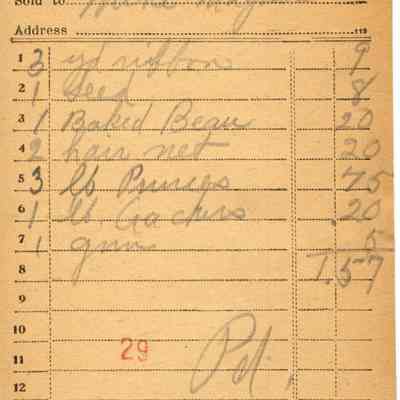 Sold to
Address
1 3 yd ribbon 9
2 1 seed 8
3 1 Baked Bean 20
4 2 hair net 20
5 3 lb Prunes 75
6 1 lb. Cackers .20
7 1 gum 5
8 1.57
9
10
11 29 Pd.
12